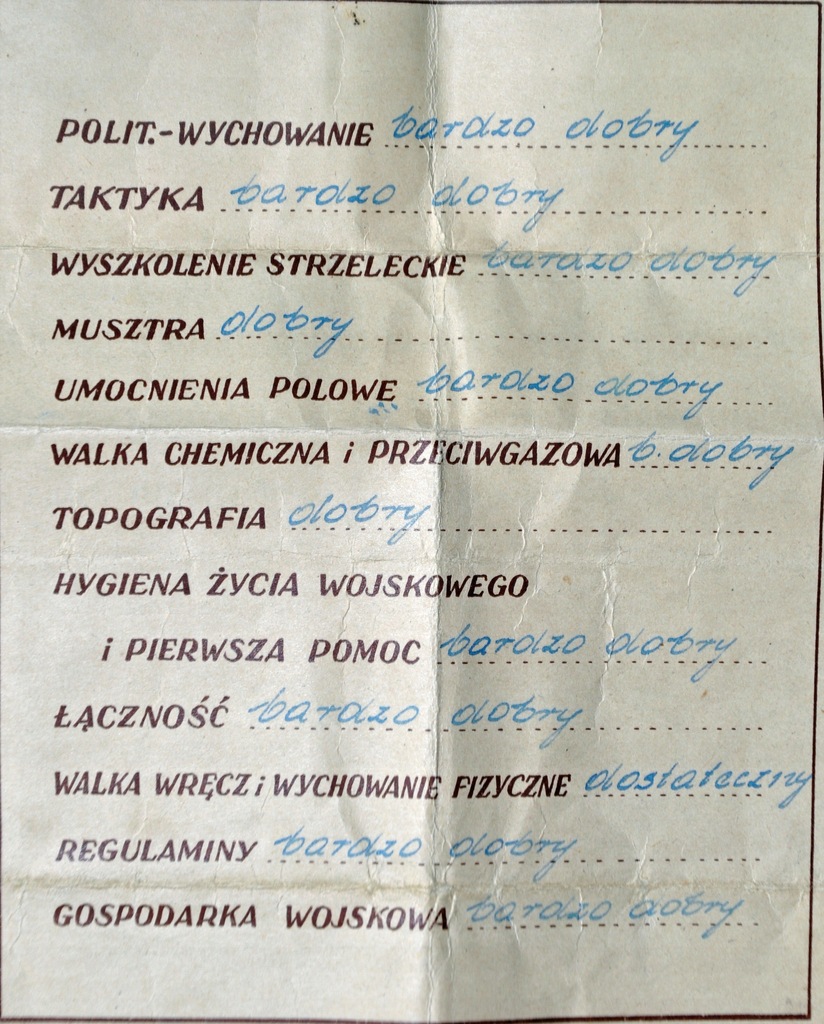 POLIT.-WYCHOWANIE bardzo dobry
TAKTYKA bardzo dobry
WYSZKOLENIE STRZELECKIE bardzo dobry
MUSZTRA dobry
UMOCNIENIA POLOWE bardzo dobry
WALKA CHEMICZNA i PRZECIWGAZOWA b. dobry
TOPOGRAFIA dobry
HYGIENA ŻYCIA WOJSKOWEGO
i PIERWSZA POMOC bardzo dobry
ŁĄCZNOŚĆ bardzo dobry
WALKA WRĘCZ i WYCHOWANIE FIZYCZNE dostateczny
REGULAMINY bardzo dobry
GOSPODARKA WOJSKOWA bardzo dobry